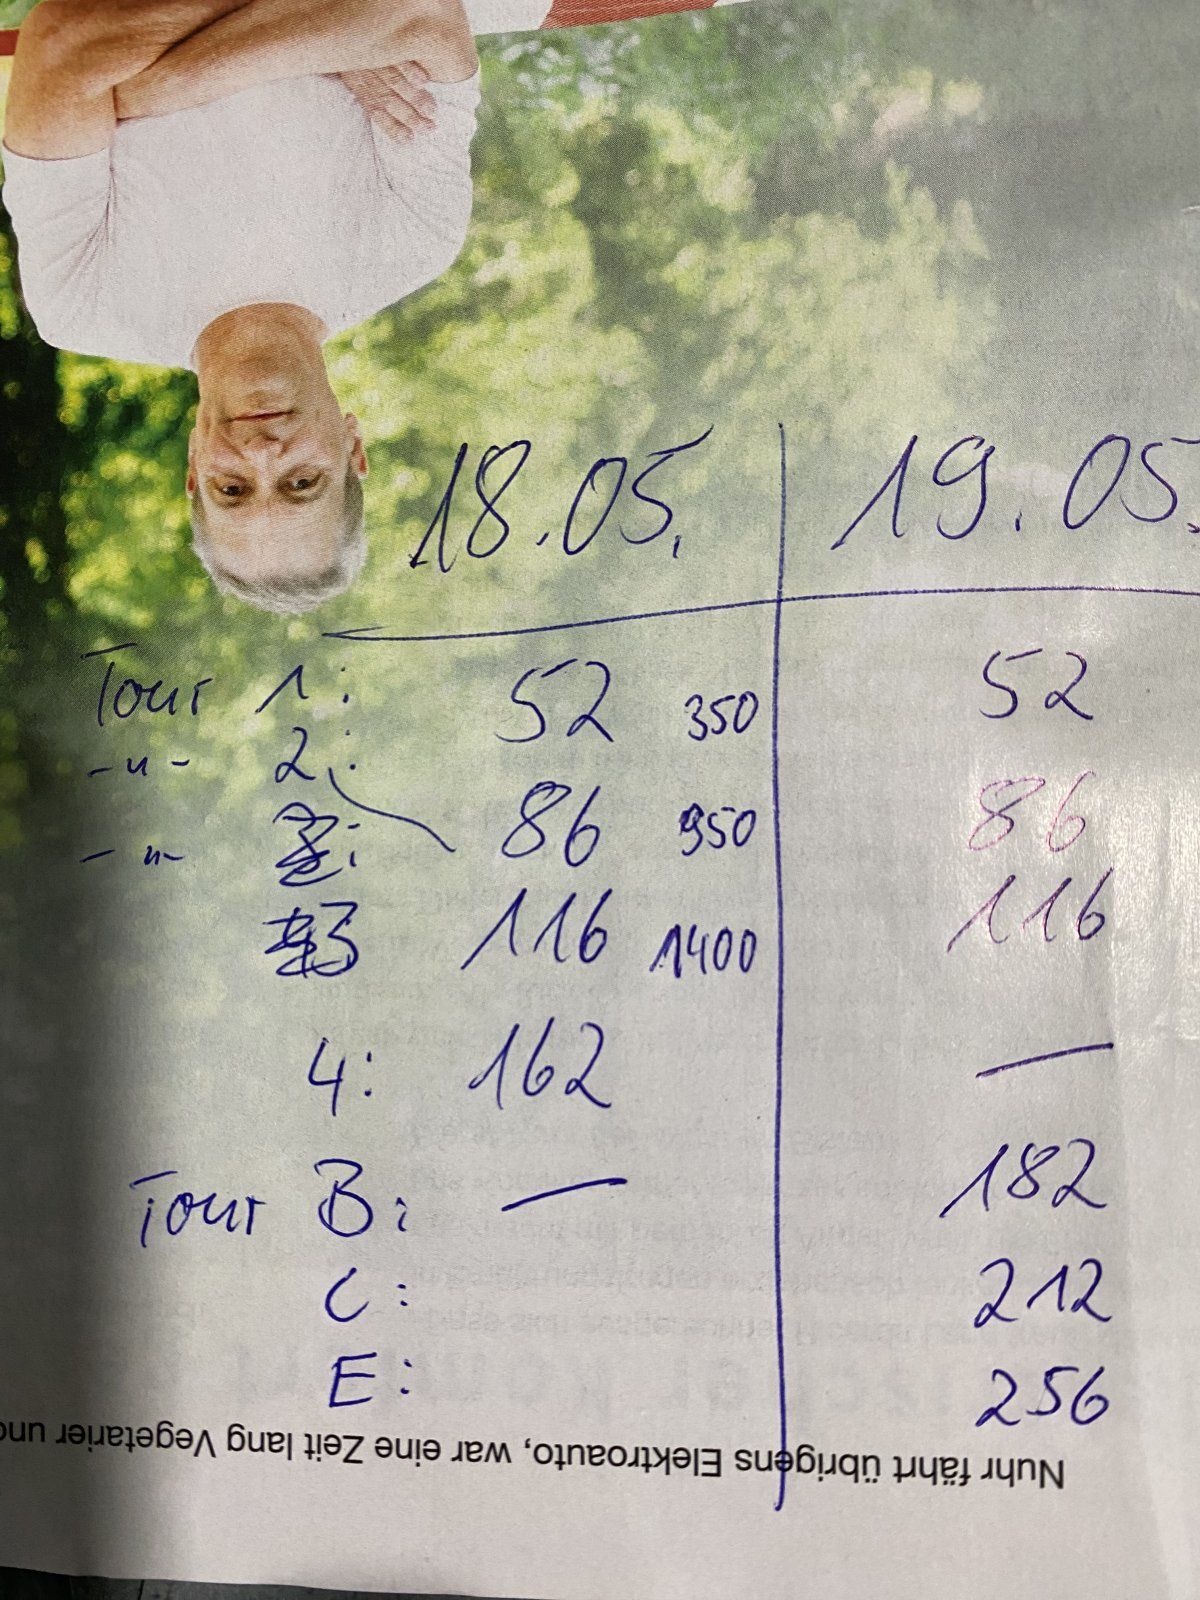 18.05. 19.05.
Tour 1: 52 350 52
-"- 2: 86 950 86
-"-
3 116 1400 116
4: 162 —
Tour B: — 182
C: 212
E: 256
Nuhr fährt übrigens Elektroauto, war eine Zeit lang Vegetarier und